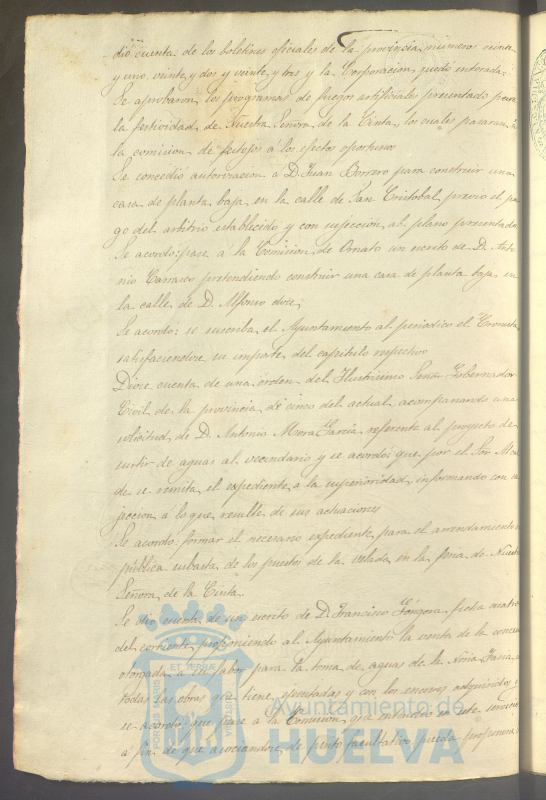 dio cuenta de los boletines oficiales de la provincia, numeros veinte
y uno, veinte y dos y veinte y tres y la Corporacion quedó enterada.
Se aprobaron los programas de fuegos artificiales presentado para
la festividad de Nuestra Señora de la Cinta, los cuales pasaran á
la comision de festejos a los efectos oportunos
Se concedió autorizacion a D. Juan Borrero para construir una
casa de planta baja en la calle de San Cristobal, previo el pa
go del arbitrio establecido y con sujeccion al plano presentado
Se acordo: pase á la Comision de Ornato un escrito de D. Anto
nio Carrasco pretendiendo construir una casa de planta baja en
la calle de D. Alfonso doce,
Se acordo: se suscriba el Ayuntamiento al periodico el Cronista
satisfaciendose su importe del capitulo respectivo
Diose cuenta de una órden del Ilustrisimo Señor Gobernador
Civil de la provincia de cinco del actual, acompañando una
solicitud de D. Antonio Mora García referente al proyecto de
surtir de aguas al vecindario y se acordó: que por el Sor. Alcal
de se remita el expediente a la superioridad, informando con su
jeccion á lo que resulte de sus actuaciones
Se acordó: formar el necesario expediente para el arrendamiento
pública subasta de los puestos de la velada en la feria de Nuestra
Señora de la Cinta
Se dio cuenta de un escrito de D. Francisco Góngora, fecha cuatro
del corriente, proponiendo al Ayuntamiento la venta de la
otorgada a su favor para la toma de aguas de la
todas las obras que tiene ejecutadas y con los enseres adquiridos y
se acordó: que pase a la Comision que entiende en este servicio
á fin de que asociandose de perito facultativo pueda proponer
PORTUS MARIS
ET TERRÆ
CUSTODIA
Ayuntamiento de
HUELVA